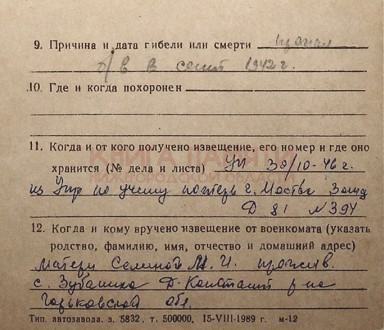 9. Причина и дата гибели или смерти пропал
б/в в сент 1942 г.
10. Где и когда похоронен
11. Когда и от кого получено извещение, его номер и где оно
хранится (№ дела и листа) 38/10-46 г.
из Упр по учету потерь г. Москва
Д 81 № 394
12. Когда и кому вручено извещение от военкомата (указать
родство, фамилию, имя, отчество и домашний адрес)
матери М. И. прожив.
с. Зубаниха Д-Константи р-на
Горьковской обл.
Тип. автозавода. з. 5832, т. 500000, 15-VIII-1989 г. м-12